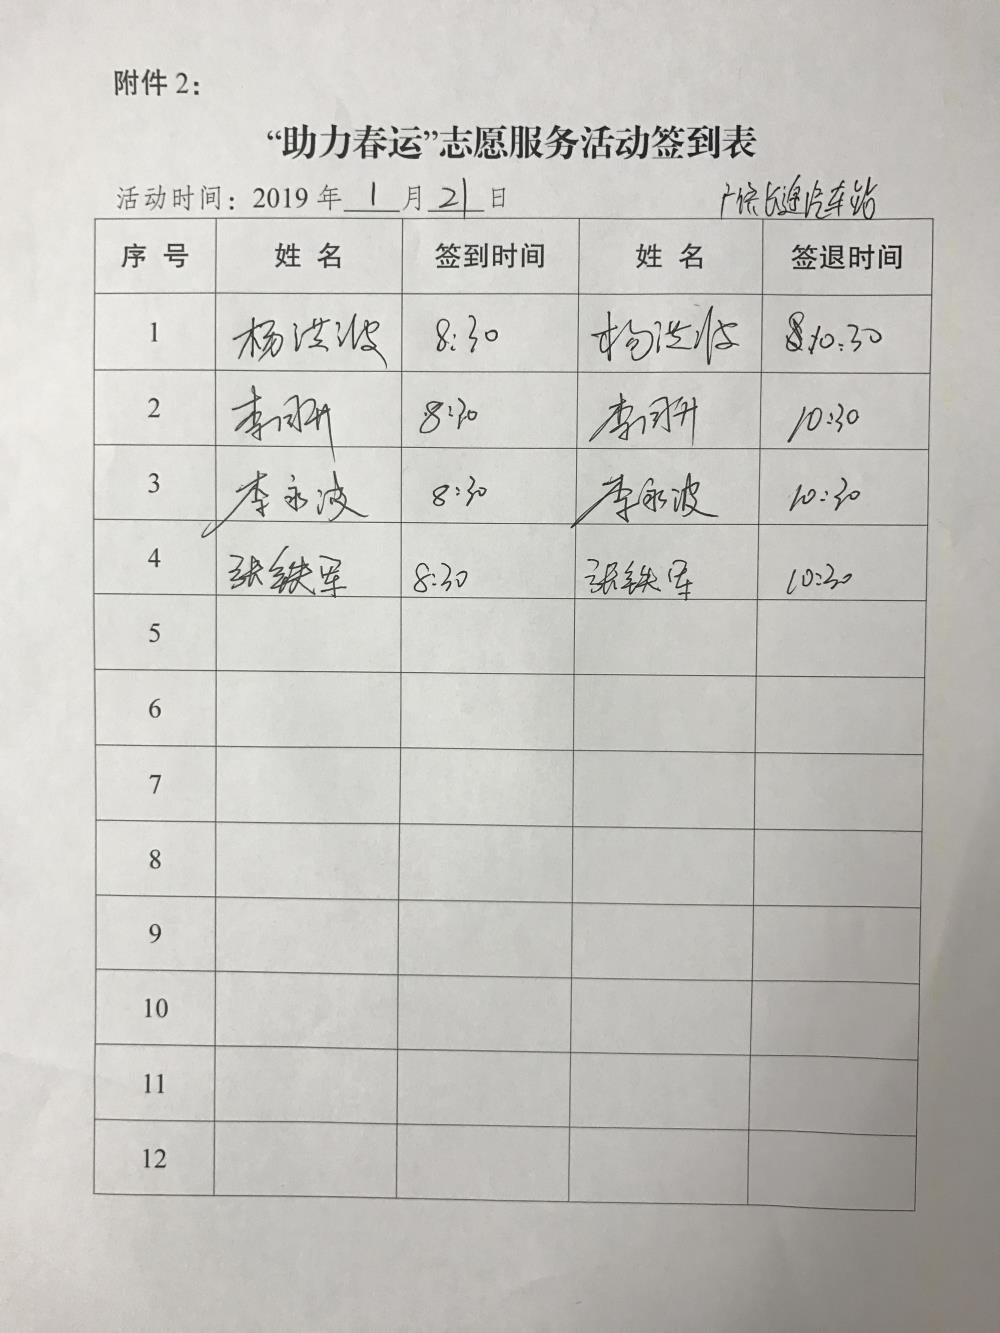 附件2：
“助力春运”志愿服务活动签到表
活动时间：2019年1月21日 广饶长途汽车站
序号 姓名 签到时间 姓名 签退时间
1 杨洪波 8:30 杨洪波 10:30
2 李 8:30 李 10:30
3 李永波 8:30 李永波 10:30
4 张铁军 8:30 张铁军 10:30
5
6
7
8
9
10
11
12